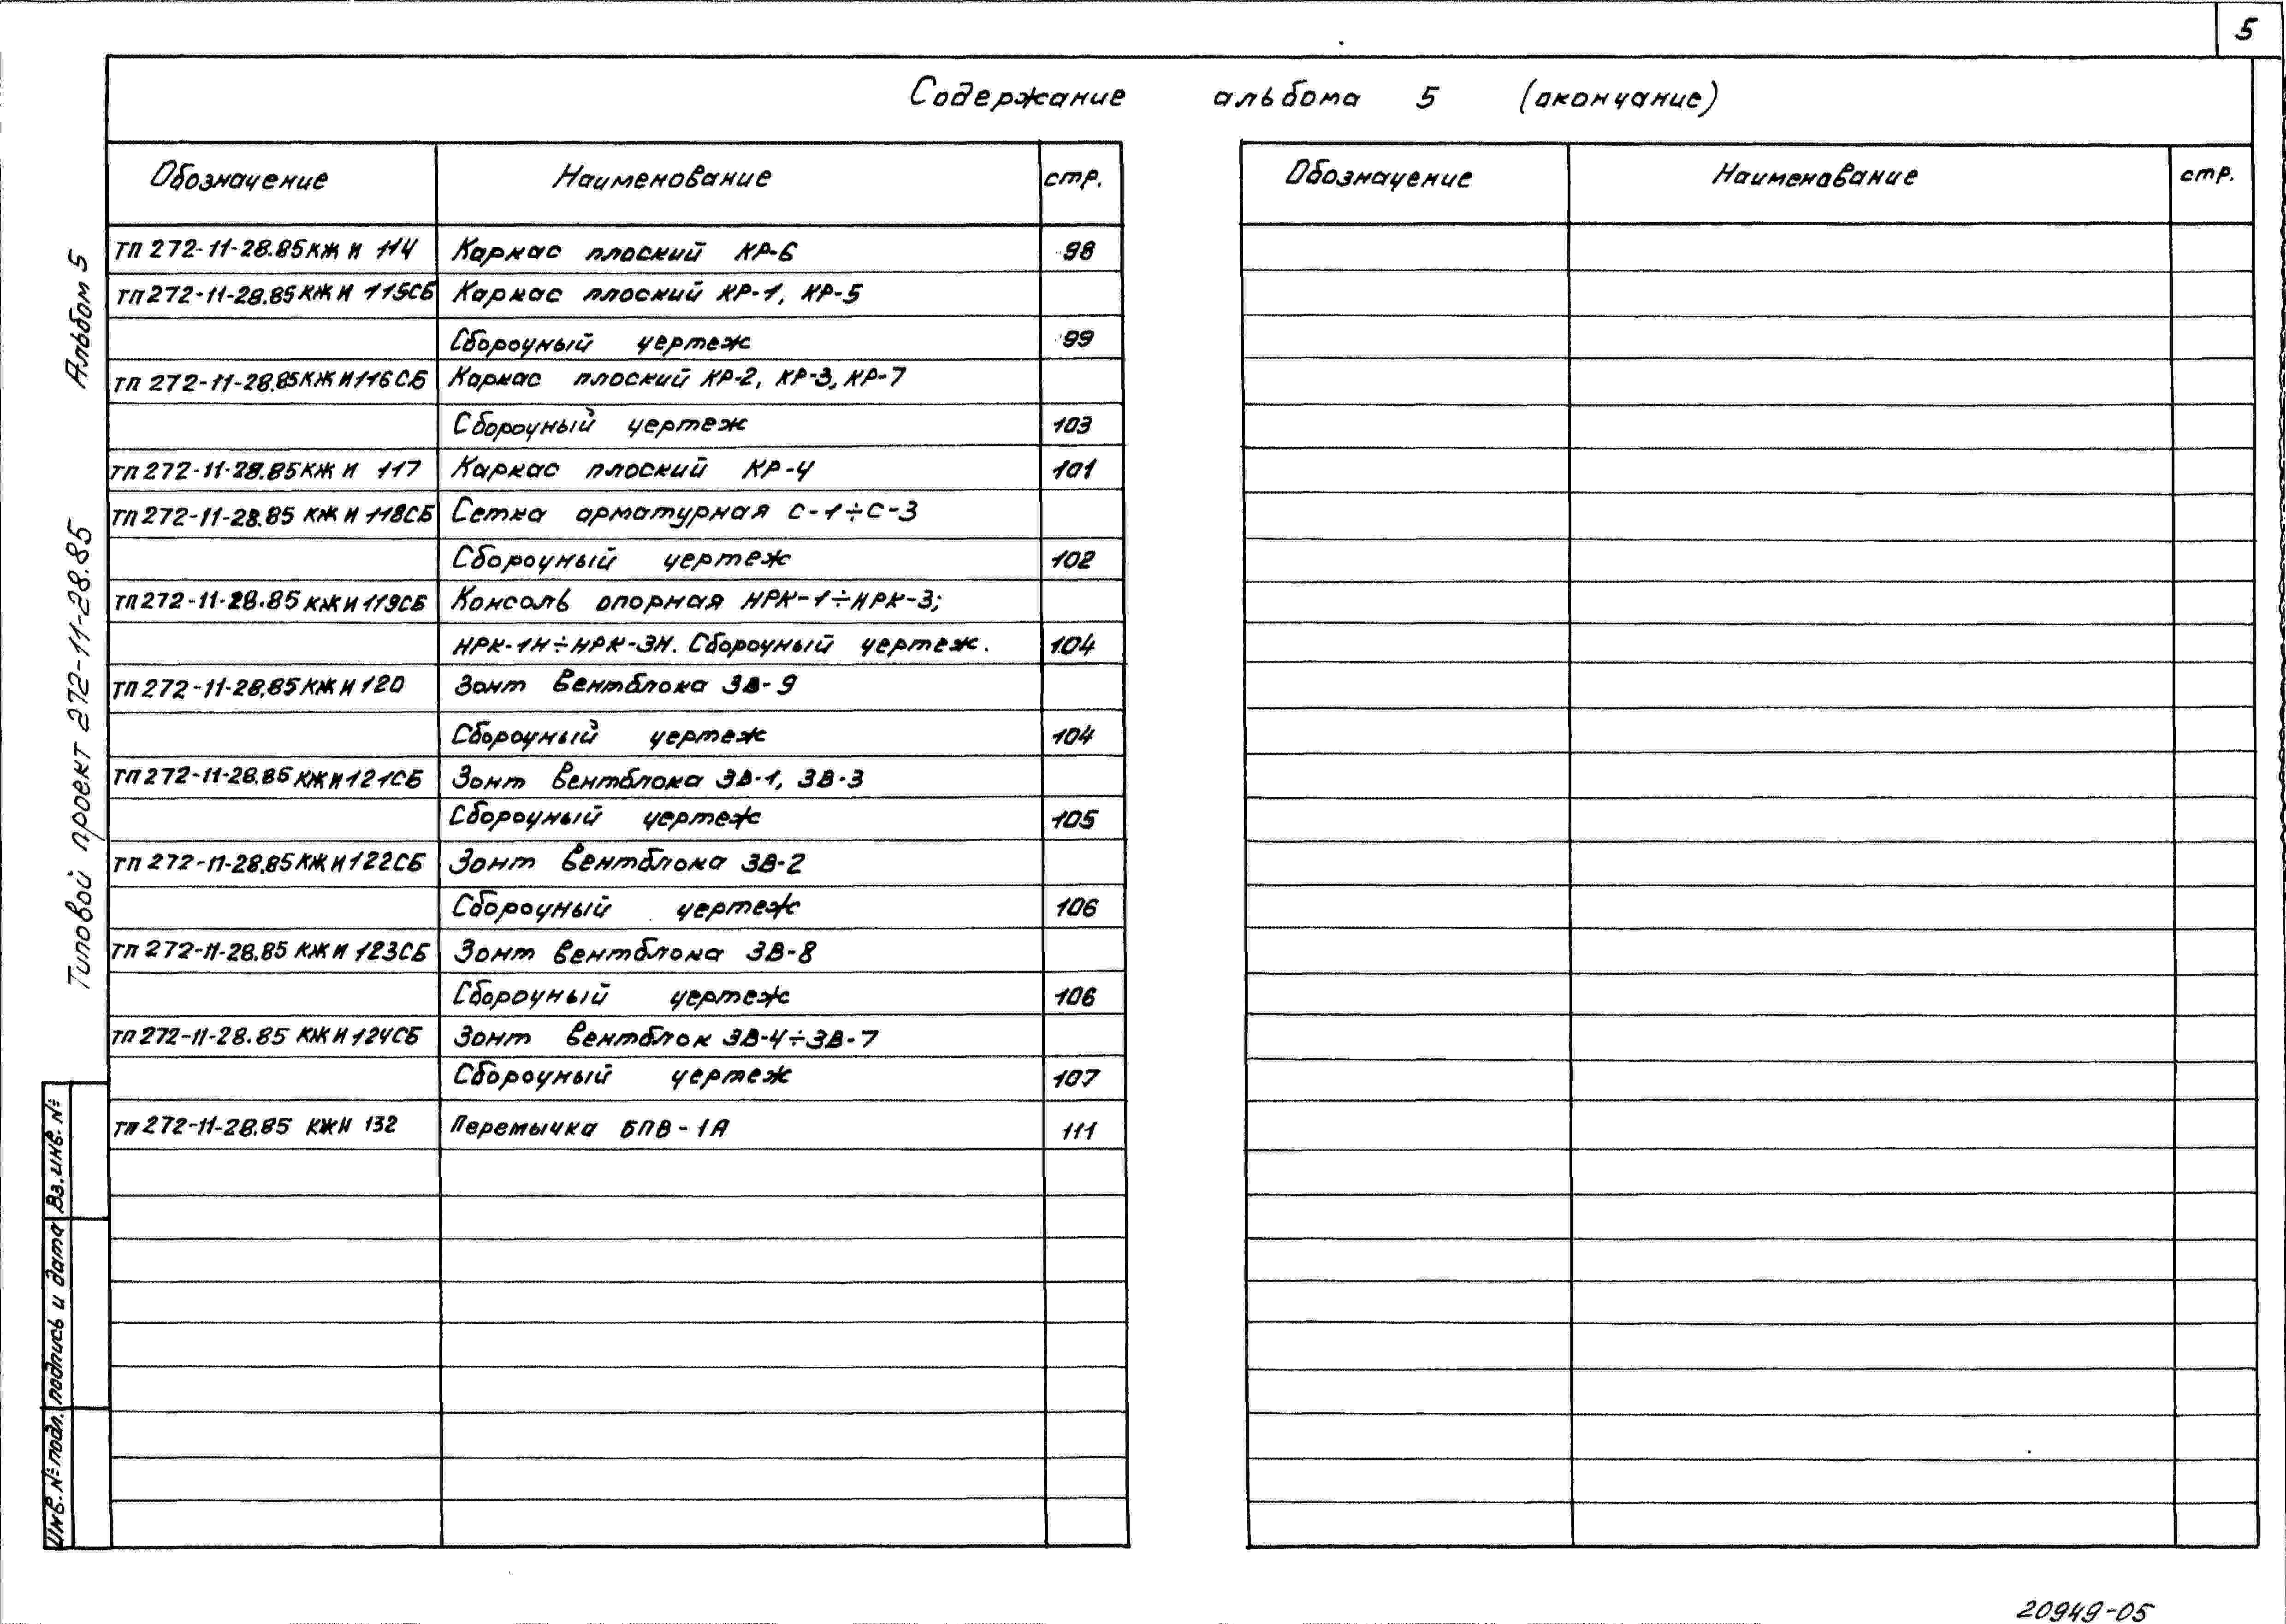 5
Содержание альбома 5 (окончание)
Обозначение Наименование стр.
ТП 272-11-28.85 КЖИ 114 Каркас плоский КР-6 98
ТП 272-11-28.85 КЖИ 115СБ Каркас плоский КР-1, КР-5
Сборочный чертеж 99
ТП 272-11-28.85 КЖИ 116СБ Каркас плоский КР-2, КР-3, КР-7
Сборочный чертеж 103
ТП 272-11-28.85 КЖИ 117 Каркас плоский КР-4 101
ТП 272-11-28.85 КЖИ 118СБ Сетка арматурная С-1÷С-3
Сборочный чертеж 102
ТП 272-11-28.85 КЖИ 119СБ Консоль опорная НРК-1÷НРК-3;
НРК-1Н÷НРК-3Н. Сборочный чертеж. 104
ТП 272-11-28.85 КЖИ 120 Зонт вентблока ЗВ-9
Сборочный чертеж 104
ТП 272-11-28.85 КЖИ 121СБ Зонт вентблока ЗВ-1, ЗВ-3
Сборочный чертеж 105
ТП 272-11-28.85 КЖИ 122СБ Зонт вентблока ЗВ-2
Сборочный чертеж 106
ТП 272-11-28.85 КЖИ 123СБ Зонт вентблока ЗВ-8
Сборочный чертеж 106
ТП 272-11-28.85 КЖИ 124СБ Зонт вентблок ЗВ-4÷ЗВ-7
Сборочный чертеж 107
ТП 272-11-28.85 КЖИ 132 Перемычка БПВ-1А 111
Обозначение Наименование стр.
Альбом 5
Типовой проект 272-11-28.85
Вз.инв.№
подпись и дата
Инв.№ подл.
20949-05